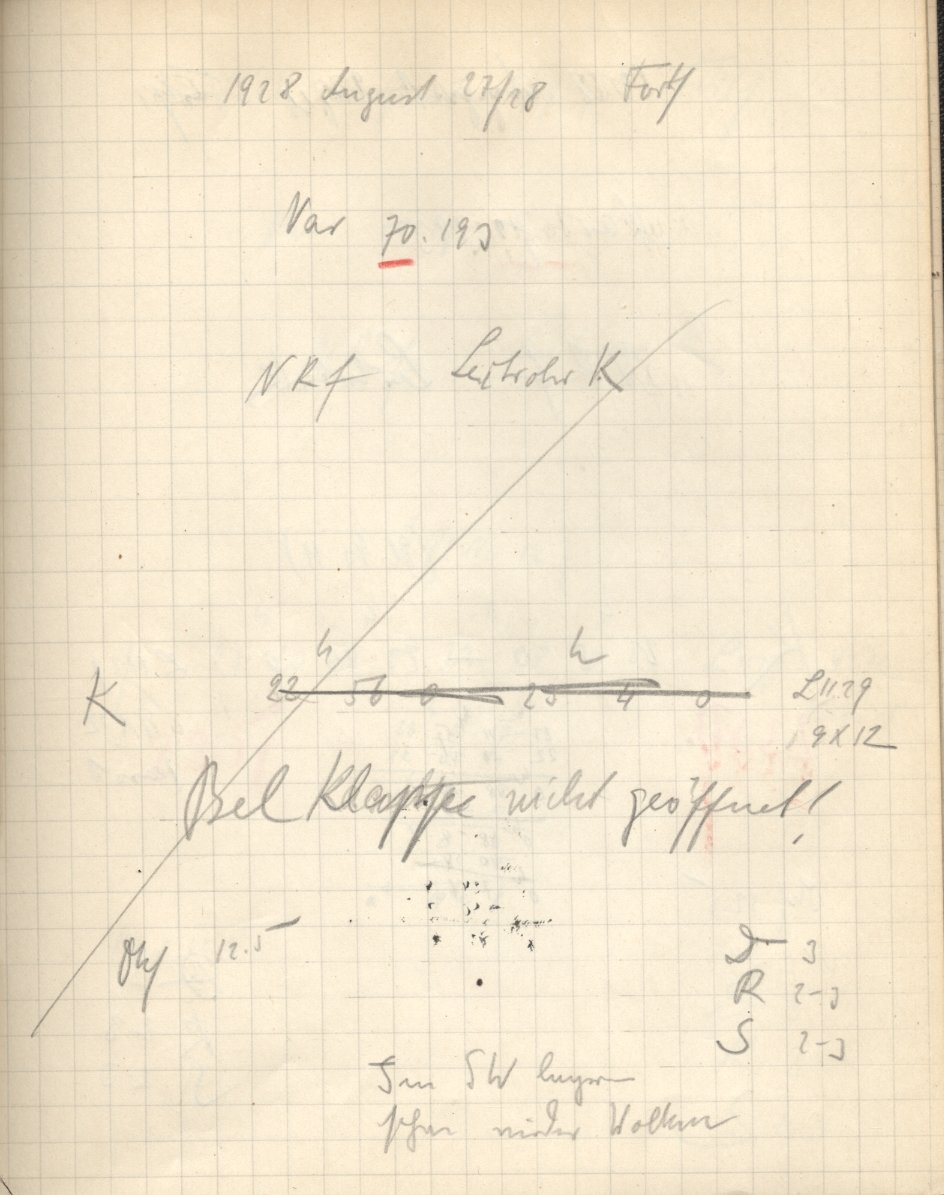 1928 August 27/28 Forts
Var 70.193
NRf Leitrohr K
h h
K 22 56 0 23 4 0 L II. 29
9X12
Bel Klappe nicht geöffnet!
Obj 12.5
D 3
R 2-3
S 2-3
Im SW lagern
schon wieder Wolken